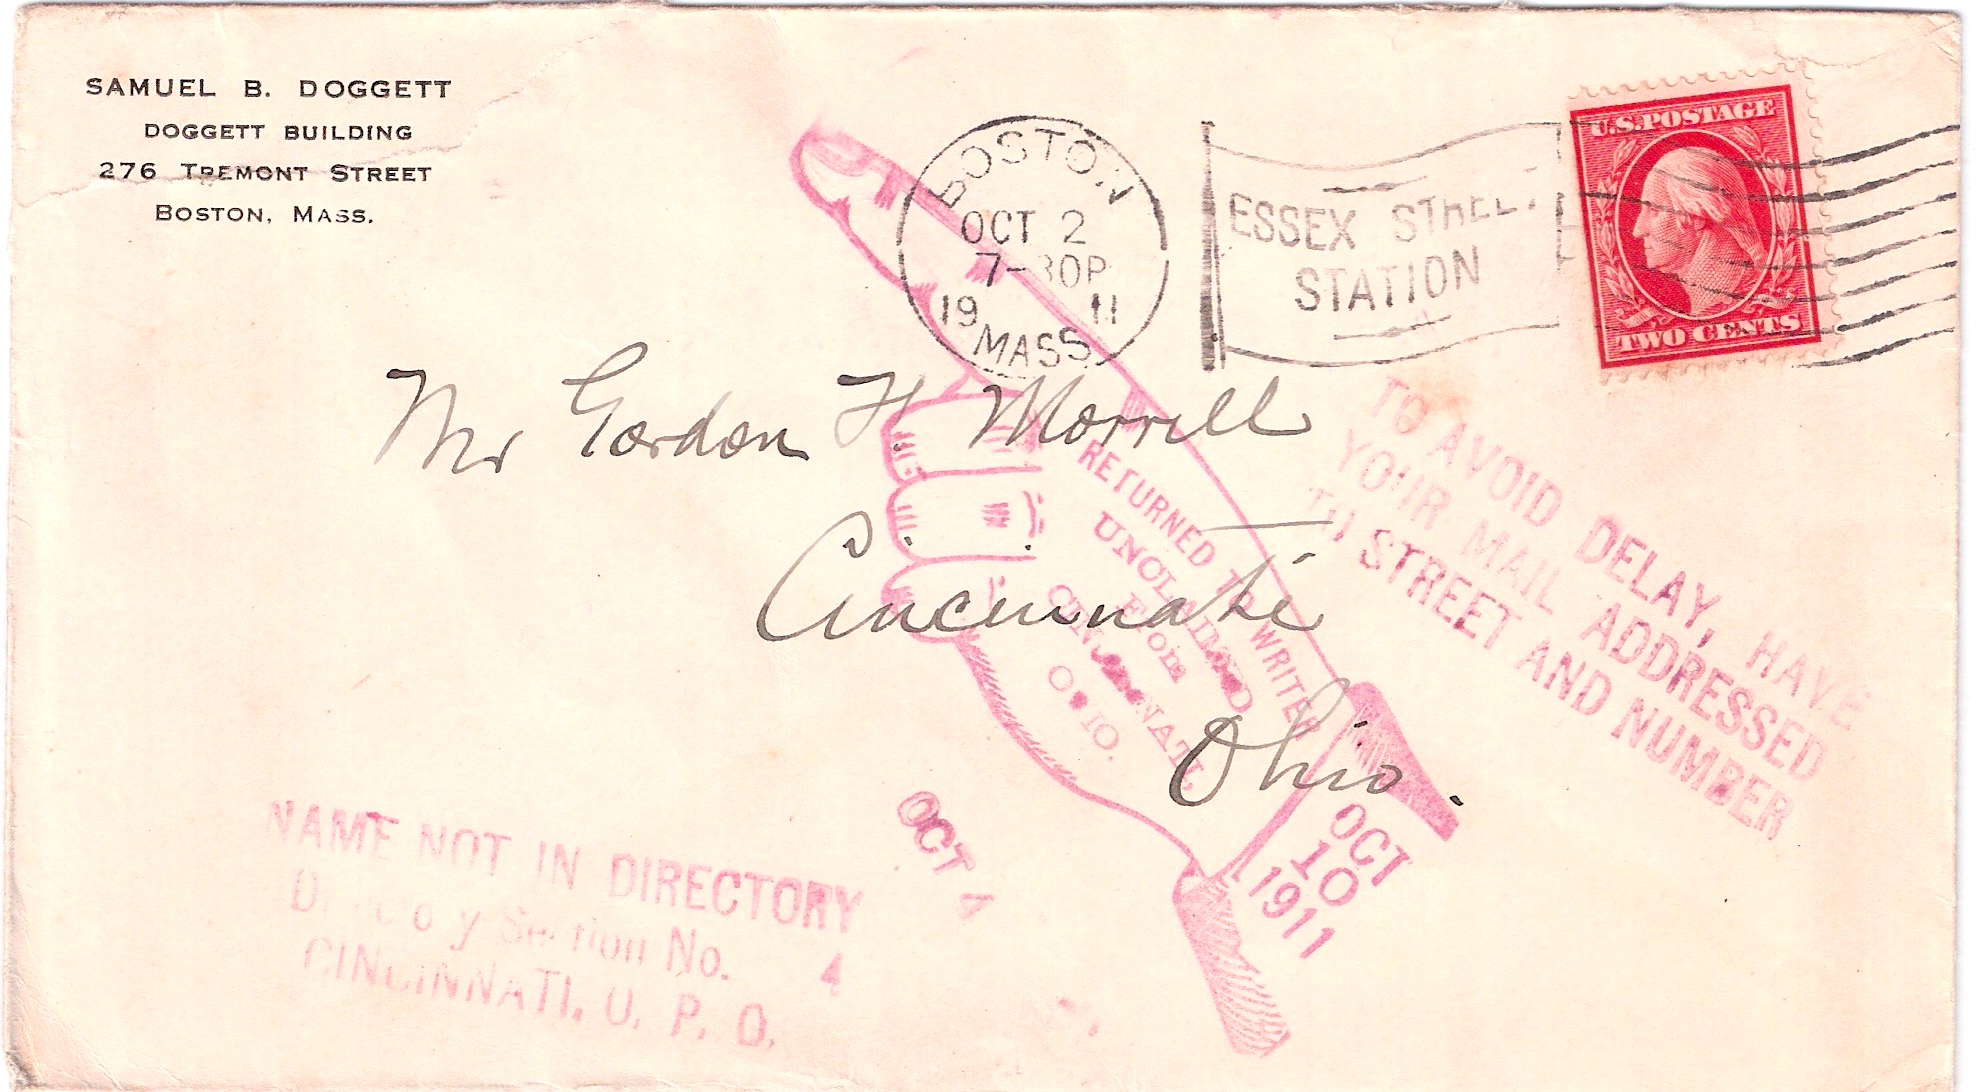 SAMUEL B. DOGGETT
DOGGETT BUILDING
276 TREMONT STREET
BOSTON, MASS.
BOSTON
OCT 2
7-30P
19 11
MASS
ESSEX STREET
STATION
U.S. POSTAGE
TWO CENTS
Mr Gordon H. Morrill
Cincinnati
Ohio.
RETURNED TO WRITER
UNCLAIMED
From
CINCINNATI,
OHIO.
TO AVOID DELAY, HAVE
YOUR MAIL ADDRESSED
TO STREET AND NUMBER
OCT 4
OCT
10
1911
NAME NOT IN DIRECTORY
Directory Section No. 4
CINCINNATI, O. P. O.